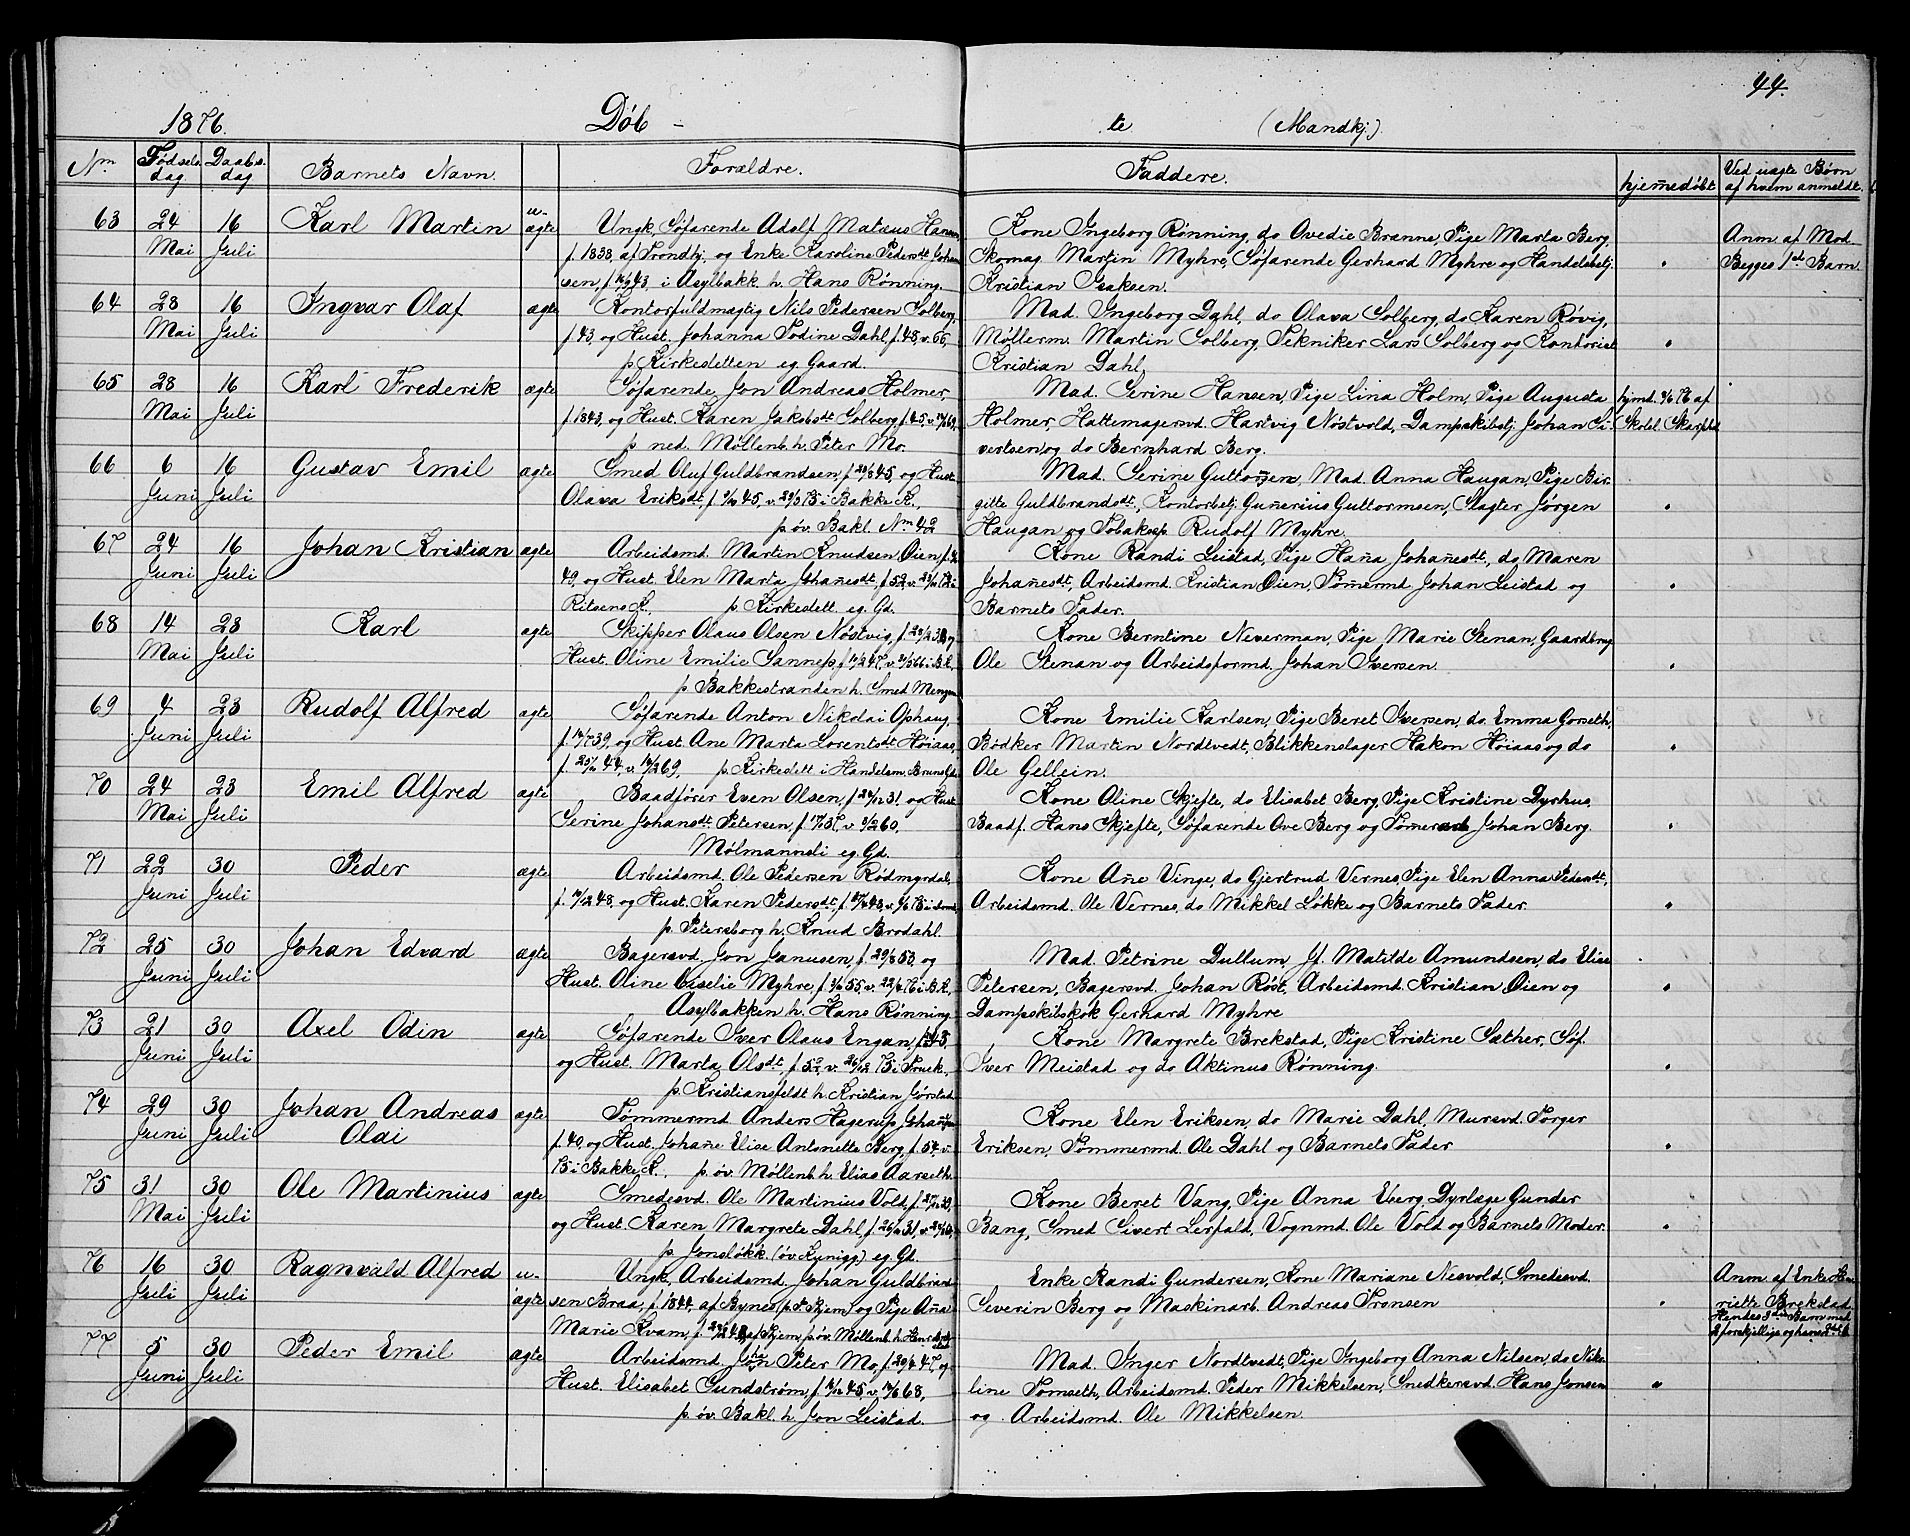 44.
1876. Döb - te (Mandkj.)
Nm. Fødsels dag Daabs dag Barnets Navn. Forældre. Faddere. hjemedöbt Ved uægte Børn af hvem anmeldt.
63 24 Mai 16 Juli Karl Martin u-ægte
Ungk. Søfarende Adolf Matæus Hansen,
f. 1838, af Trondhj. og Enke Karoline Pedersdt. Johan
sen, i Asylbakk. h. Hans Rønning.
Kone Ingeborg Rønning, do Ovedie Branne, Pige Marta Berg,
Skomag. Martin Myhre, Søfarende Gerhard Myhre og Handelsbetj.
Kristian Isaksen.
Anm. af Mod.
Begges 1st Barn
64 28 Mai 16 Juli Ingvar Olaf ægte
Kontorfuldmægtig Nils Pedersen Solberg,
f. 43, og Hust. Johanna Jodine Dahl, f. 48, v. 66,
p. Kirkesletten eg. Gaard.
Mad. Ingeborg Dahl, do Olava Solberg, do Karen Røvig,
Møllerm. Martin Solberg, Tekniker Lars Solberg og Kontorist
Kristian Dahl,
65 28 Mai 16 Juli Karl Frederik ægte
Søfarende Jon Andreas Holmer,
f. 1843, og Hust. Karen Jakobsdt. Solberg, f. 45,
p. ned. Møllenb. h. Peter Mo.
Mad. Serine Hansen, Pige Lina Holm, Pige Augusta
Holmer, Hattemagersvd. Hartvig Nöstvold, Dampskibsbetj. Johan Si-
vertsen og do Bernhard Berg.
hjmd. af
Skolel.
66 6 Juni 16 Juli Gustav Emil ægte
Smed Oluf Guldbrandsen, og Hust.
Olava Eriksdt, i Bakke K.,
p. öv. Bakl. Nm 42
Mad. Serine Guttormsen, Mad. Anna Haugan, Pige Bir-
gitte Guldbrandsdt., Kontorbetj. Gunerius Guttormsen, Slagter Jørgen
Haugan og Tobaksp. Rudolf Myhre
67 24 Juni 16 Juli Johan Kristian ægte
Arbeidsmd. Martin Knudsen Øien,
49, og Hust. Elen Marta Johanesdt, f. 52,
p. Kirkeslett. eg. Gd.
Kone Randi Leistad, Pige Hana Johanesdt., do Maren
Johanesdt, Arbeidsmd. Kristian Øien, Tömermd Johan Leistad og
Barnets Fader.
68 14 Mai 23 Juli Karl ægte
Skipper Olaus Olsen Nöstvig,
Hust. Oline Emilie Sannes,
p. Bakkestranden h. Smed
Kone Berntine Neverman, Pige Marie Stenan, Gaardbrug
Ole Stenan og Arbeidsformd. Johan Iversen.
69 4 Juni 23 Juli Rudolf Alfred ægte
Søfarende Anton Nikolai Ophaug,
og Hust. Ane Marta Lorentsdt Höiaas,
p. Kirkeslett i Handelsm. Bruns Gd.
Kone Emilie Karlsen, Pige Beret Iversen, do. Emma Gorseth,
Bødker Martin Nordtvedt, Blikkenslager Hakon Höiaas og do
Ole Gellein.
70 24 Mai 23 Juli Emil Alfred ægte
Baadförer Even Olsen, og Hust.
Serine Johansdt. Petersen,
Mølmannsli eg. Gd.
Kone Oline Skjefte, do Elisabet Berg, Pige Kristine Dyrhus,
Baadf. Hans Skjefte, Søfarende Ove Berg og Tømersvd Johan Berg.
71 22 Juni 30 Juli Peder ægte
Arbeidsmd. Ole Pedersen Rødmyrdal,
og Hust. Karen Pedersdt,
p. Petersborg h. Knud Brodahl.
Kone Ane Vinge, do Gjertrud Vernes, Pige Elen Anna Pedersdt,
Arbeidsmd. Ole Vernes, do Mikkel Løkke og Barnets Fader.
72 25 Juni 30 Juli Johan Edvard ægte
Bagersvd. Jon Janusen, og
Hust. Oline Giselie Myhre, i B.K.,
Asylbakken h. Hans Rønning
Mad. Petrine Dullum, Jf. Matilde Amundsen, do Elise
Petersen, Bagersvd. Johan Røst, Arbeidsmd. Kristian Øien og
Dampskibskok Gerhard Myhre
73 21 Juni 30 Juli Axel Odin ægte
Søfarende Iver Olaus Engan,
og Hust. Marta Olsdt, f. 52,
p. Kristiansfeldt h. Kristian Gjørstad
Kone Margrete Brekstad, Pige Kristine Sæther, Söf.
Iver Meistad og do Aktinus Rønning.
74 29 Juni 30 Juli Johan Andreas Olai ægte
Tømmermd. Anders Hagerup Johansen
f. 40, og Hust. Johane Elise Antonette Berg, f. 54, v.
75 i Bakke K., p. öv. Møllenb. h. Elias Aarseth.
Kone Elen Eriksen, do Marie Dahl, Mursvd. Torger
Eriksen, Tømmermd. Ole Dahl og Barnets Fader
75 31 Mai 30 Juli Ole Martinius ægte
Smedesvd. Ole Martinius Vold,
og Hust. Karen Margrete Dahl,
p. Jonsløkk. eg. Gd.
Kone Beret Vang, Pige Anna Eberg, Dyrlæge Gunder
Bang, Smed Sivert Lerfald, Vognmd. Ole Vold og Barnets Moder.
76 16 Juli 30 Juli Ragnvald Alfred u-ægte
Ungk. Arbeidsmd. Johan Guldbrand
sen Braa, f. 1844, af Bynes, og Pige Ana
Marie Kvam, p. öv. Møllenb. h.
Enke Randi Gundersen, Kone Mariane Nesvold, Smedesvd.
Severin Berg og Maskinarb. Andreas Tronsen
Anm. af Enke Hen
riette Brekstad.
Hendes 3die Barn med
2 forskjellige og hans
77 5 Juni 30 Juli Peder Emil ægte
Arbeidsmd. Johan Peter Mo, og
Hust. Elisabet Sundström,
p. öv. Bakl. h. Jon Leistad.
Mad. Inger Nordtvedt, Pige Ingeborg Anna Nilsen, do Niko-
line Tomseth, Arbeidsmd. Peder Mikkelsen, Snedkersvd. Hans Jonsen
og Arbeidsmd. Ole Mikkelsen.